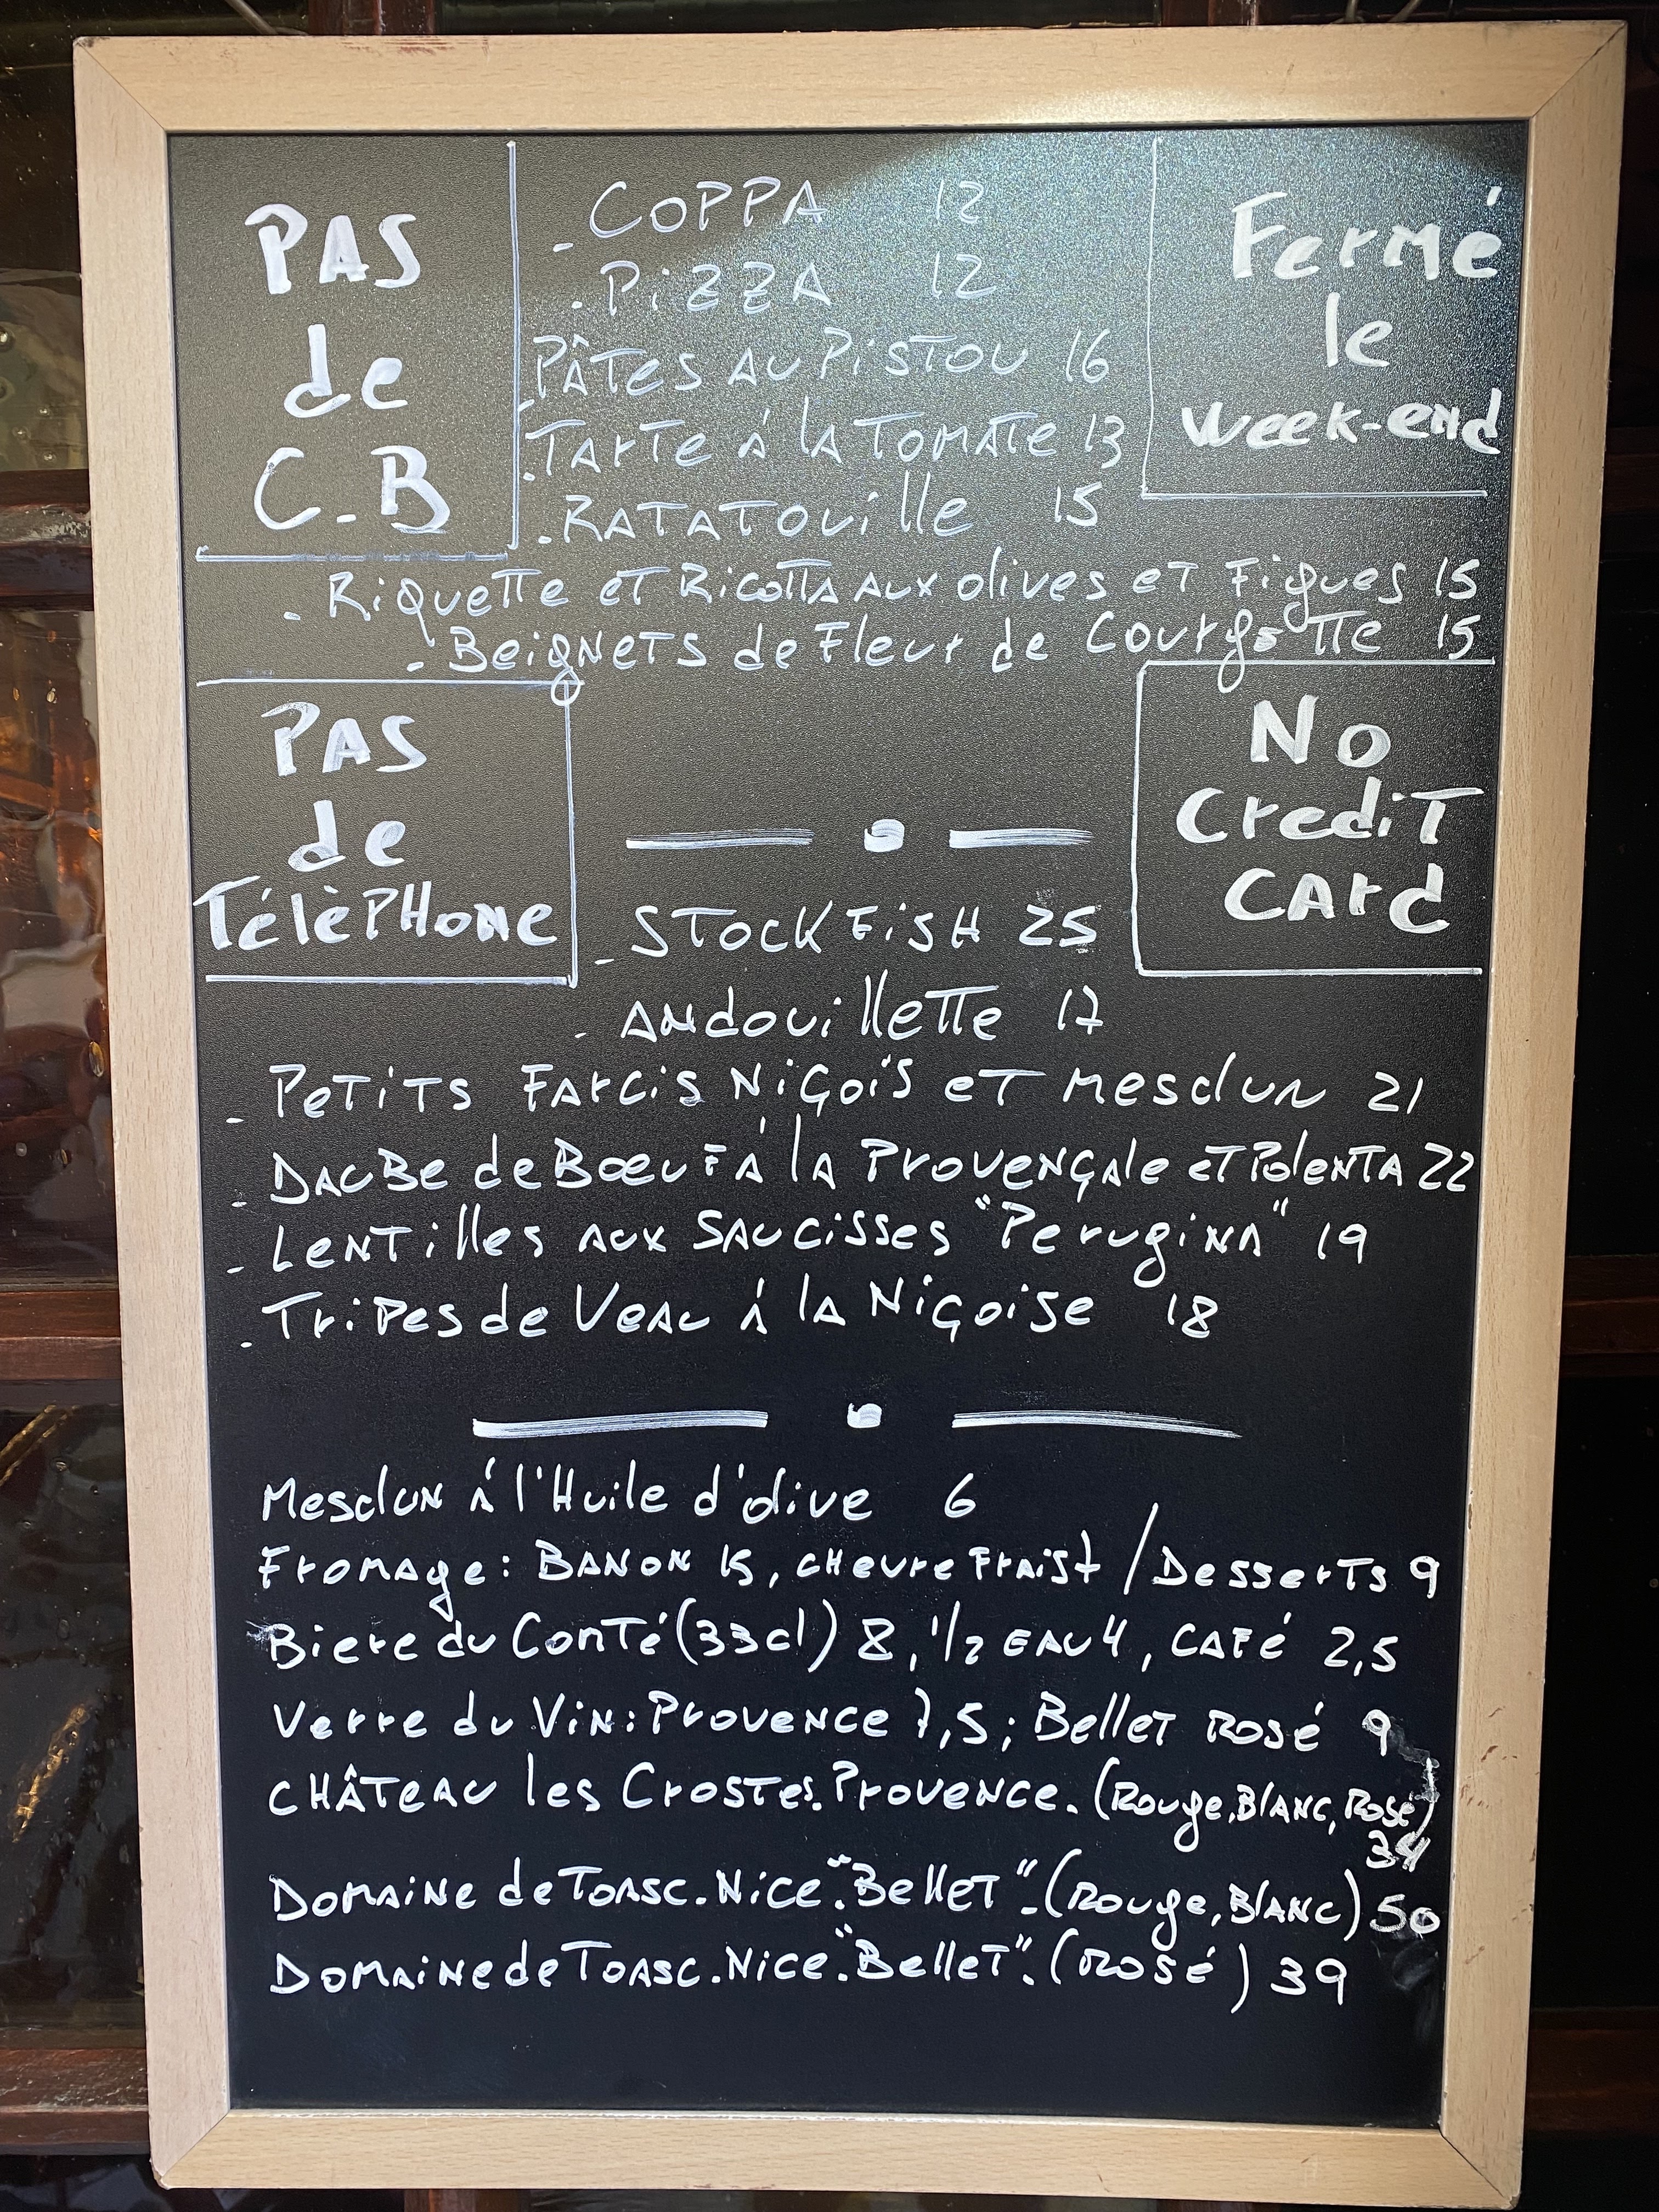 PAS
de
C.B
- COPPA 12
- PiZZA 12
- PÂTES AU PiSTOU 16
- TARTE á lA TOMATE 13
- RATATOUille 15
Fermé
le
week-end
- RiQUETTE ET RicOTTA AUX olives ET Figues 15
- BeigNETS de Fleur de CourgeTTe 15
PAS
de
TélèPHONE
No
CrediT
CArd
- STOCKFiSH 25
- ANdouilleTTe 17
- PeTiTS FArCiS NiÇoiS eT Mesclun 21
- DAUBe de BœuF á lA ProveNÇAle eT PolenTA 22
- LeNTilles AUX SAUCisses "PerugiNA" 19
- TriPes de VeAU á lA NiÇoise 18
MesclUN á l'Huile d'olive 6
FroMAge: BANON 15, CHevre FrAis 7 / DesserTs 9
Biere du ConTé (33cl) 8, 1/2 EAU 4, CAFé 2,5
Verre du ViN: ProveNce 7,5; BelleT Rosé 9
CHÂTeAU les CrosTes. ProveNce. (Rouge, BlANC, Rosé)
34
DoMAiNe de ToAsc. Nice. "BelleT". (Rouge, BlANC) 50
DoMAiNe de ToAsc. Nice. "BelleT". (Rosé) 39